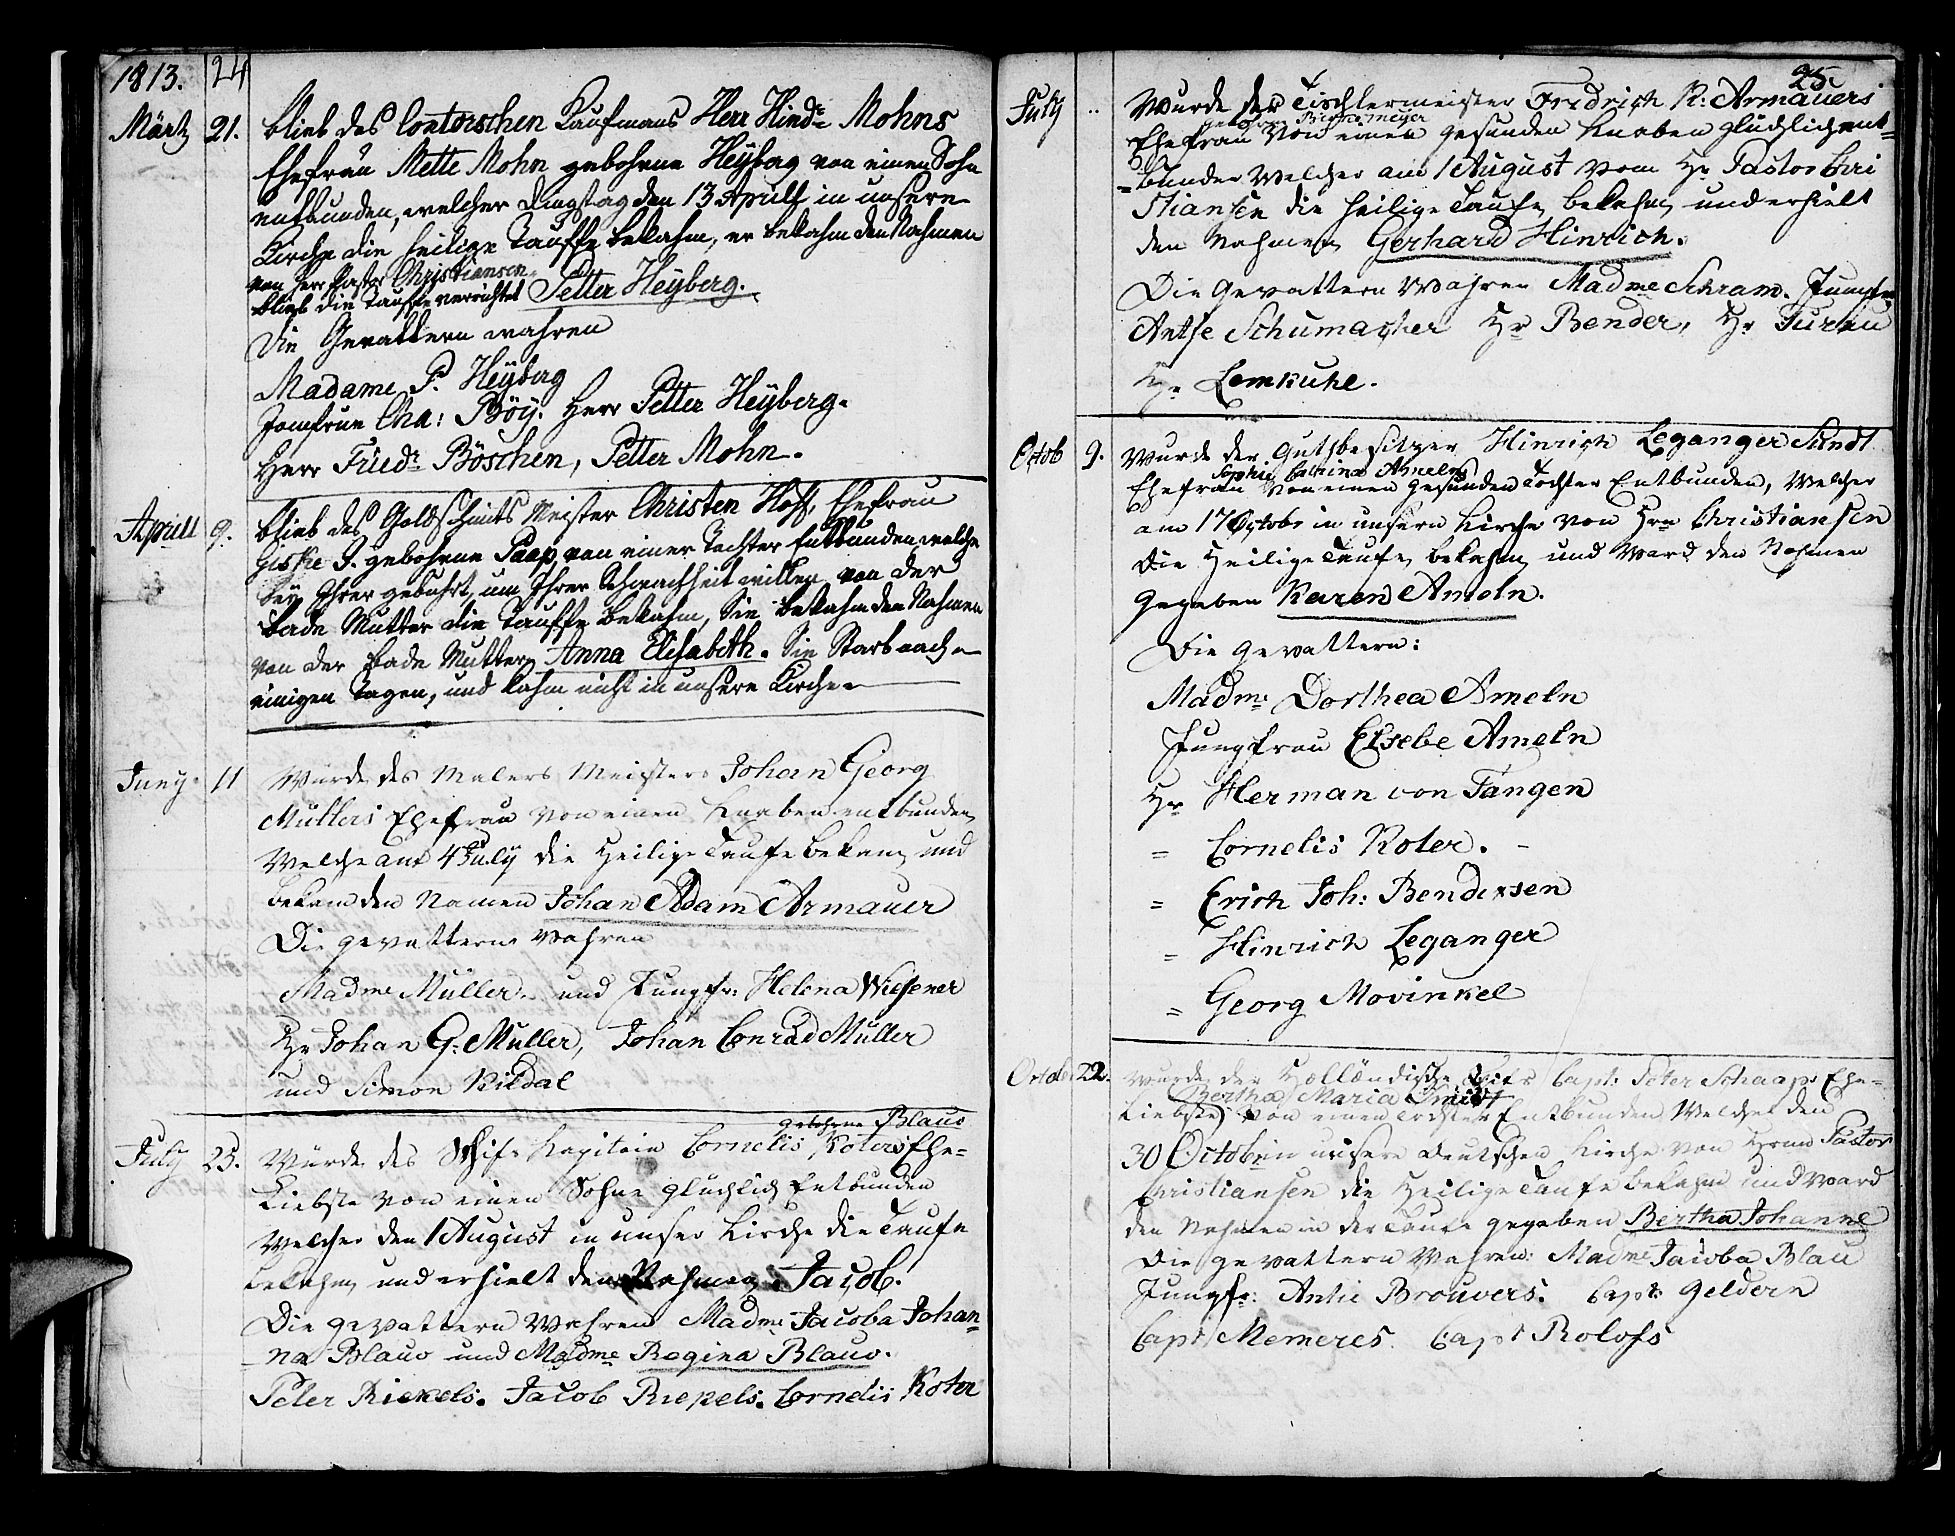 1813. 24
Märtz 21. blieb des Contorschen Kaufmans Herr Hindr. Mohns
Ehefrau Mette Mohn gebohrne Heÿberg von einen Sohn
entbunden, welcher Dingstag den 13 Aprill in unsere
Kirche die heilige Tauffe bekahm, er bekahm den Nahmen
von Herr Pastor Christiansen
blieb die Tauffe verrichtet Petter Heÿberg.
Die Gevattern wahren
Madame P. Heÿberg
Jomfrue Cha: Böÿ. Herr Petter Heÿberg.
Herr Friedr. Böschen, Petter Mohn.
Aprill 9. blieb des Goldschmits Meister Christen Hoff, Ehefrau
Giske J. gebohrne Paap, von einer Tochter Entbunden welche
beÿ Ihrer gebuhrt, um Ihrer Schwachheit willen, von der
bade Mutter die Tauffe bekahm, Sie bekahm den Nahmen
von der bade Mutter Anna Elisabeth. Sie Starb nach
einigen Tagen, und kahm nicht in unsere Kirche.
Juny 11 Wurde des Malers Meisters Johan Georg
Mullers Ehefrau von einen Knaben entbunden
Welche auf 4 July die Heilige Taufe bekam und
bekam den Namen Johan Adam Armauer
Die gevattern Wahren
Madme Müller. und Jungfr: Helena Wiesener
Hr Johan G. Muller, Johan Conrad Muller
und Simon Kildal
gebohrne Blauw
July 25. Wurde des Schifs Kapitein Cornelis Koters Ehe=
Liebste von einen Sohne glücklich Entbunden
Welcher den 1 August in unser Kirche die Taufe
bekahm und erhielt den Nahmen Jacob.
Die gevattern Wahren Madme Jacoba Johan=
na Blauw und Madme Regina Blauw.
Peter Riekels. Jacob Repels. Cornelis Koter
25.
July Wurde der Tischlermeister Fredrich R: Armauers
Ehefrau von einen gesunden Knaben glücklich ent=
=bunden Welcher am 1 August vom Hr Pastor Chri
stiansen die heilige Taufe bekahm und erhielt
den Nahmen Gerhard Hinrich.
Die Gevattern Wahren Madme Schram. Jungfr
Antje Schumacher Hr Bender, Hr Jurau
Hr Lemkuhl.
Octob 9. Wurde der Gutsbesitzer Hinrich Leganger Sundt
Sophie Catrina Ameln
Ehefrau von einen gesunden Tochter Entbunden, Welcher
am 17 Octobr in unsern Kirche von Hrn Christiansen
die Heilige Taufe bekahm und Ward den Nahmen
gegeben Karen Ameln.
Die gevattern:
Madme Dorthea Ameln
Jungfrau Elsebe Ameln
Hr Herman von Tangen
= Cornelis Koter.
= Erich Joh: Bendixsen
= Hinrich Leganger
= Georg Movinkel
Octob 22. Wurde der Holländische Schifs Capt: Peter Schaaps Ehe=
Bertha Maria Smidt
Liebste von einen Tochter Entbunden Welcher den
30 Octobr in unsere deutschen Kirche von Herrn Pastor
Christiansen die Heilige Taufe bekahm und Ward
den Nahmen in der Taufe gegeben Bertha Johanne
Die gevattern Wahren: Madme Jacoba Blau
Jungfr: Antie Brouvers. Capt: Geldern
Capt Memeres. Capt Rolofs